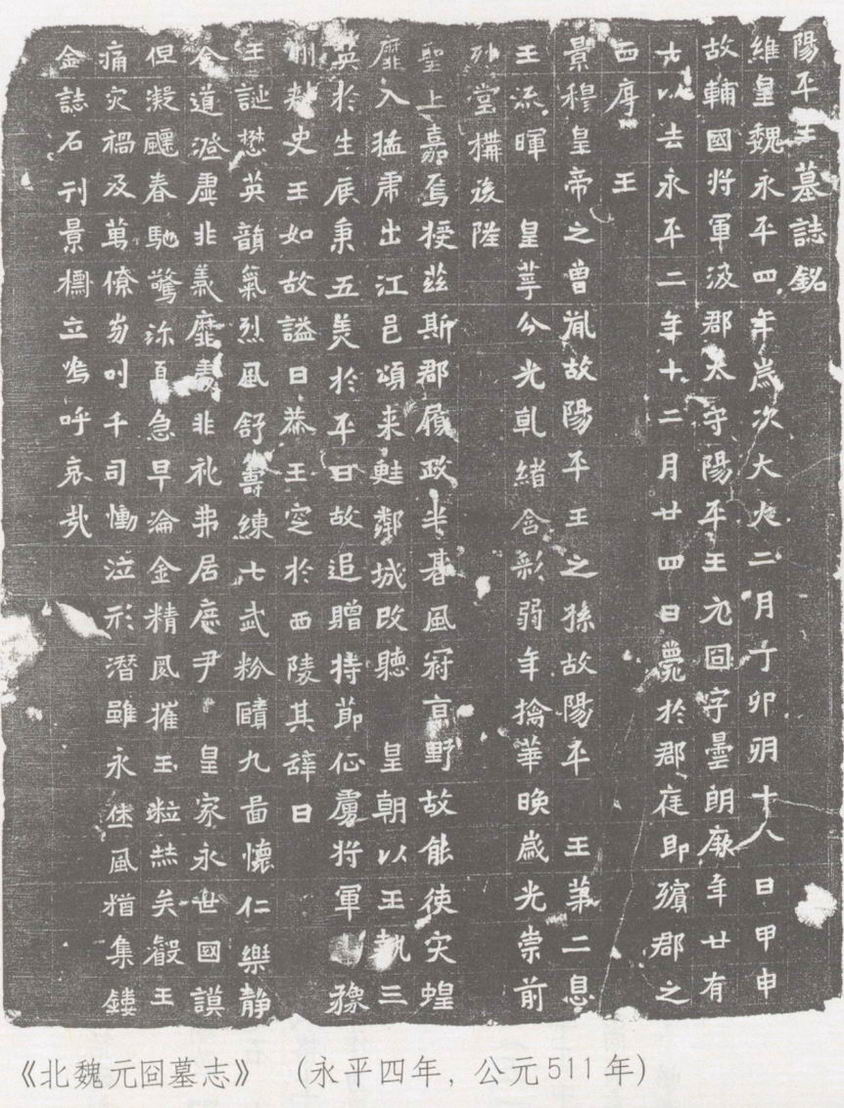 陽平王墓誌銘
維皇魏永平四年歲次大火二月丁卯朔十八日甲申
故輔國將軍汲郡太守陽平王元冏字曇朗厥年廿有
六以去永平二年十二月廿四日薨於郡庭即殯郡之
西序 王
景穆皇帝之曾胤故陽平王之孫故陽平 王第二息
王流暉 皇萼分光軋緒含彰弱年擒華晚歲光崇前
列堂構後陞
聖上嘉焉授茲斯郡履政半朞風冠亰野故能使灾蝗
靡入猛虎出江邑頌来鮭鄰城改聽 皇朝以王執三
英於生辰秉五美於平日故追贈持節征虜將軍豫
州刾史王如故謚曰恭王窆於西陵其辞曰
王誕懋英韻氣烈風舒籌練七武粉賾九啚懷仁樂静
含道澄虛非義靡襲非礼弗居庶尹 皇家永世國謨
但凝飈春馳驚沴夏急早淪金精夙摧玉粒㷼矣叡王
痛灾禍及萬僚芴叫千司慟泣形潜雖永烋風猶集鏤
金誌石刊景櫋立嗚呼哀哉
《北魏元冏墓志》 (永平四年, 公元511年)